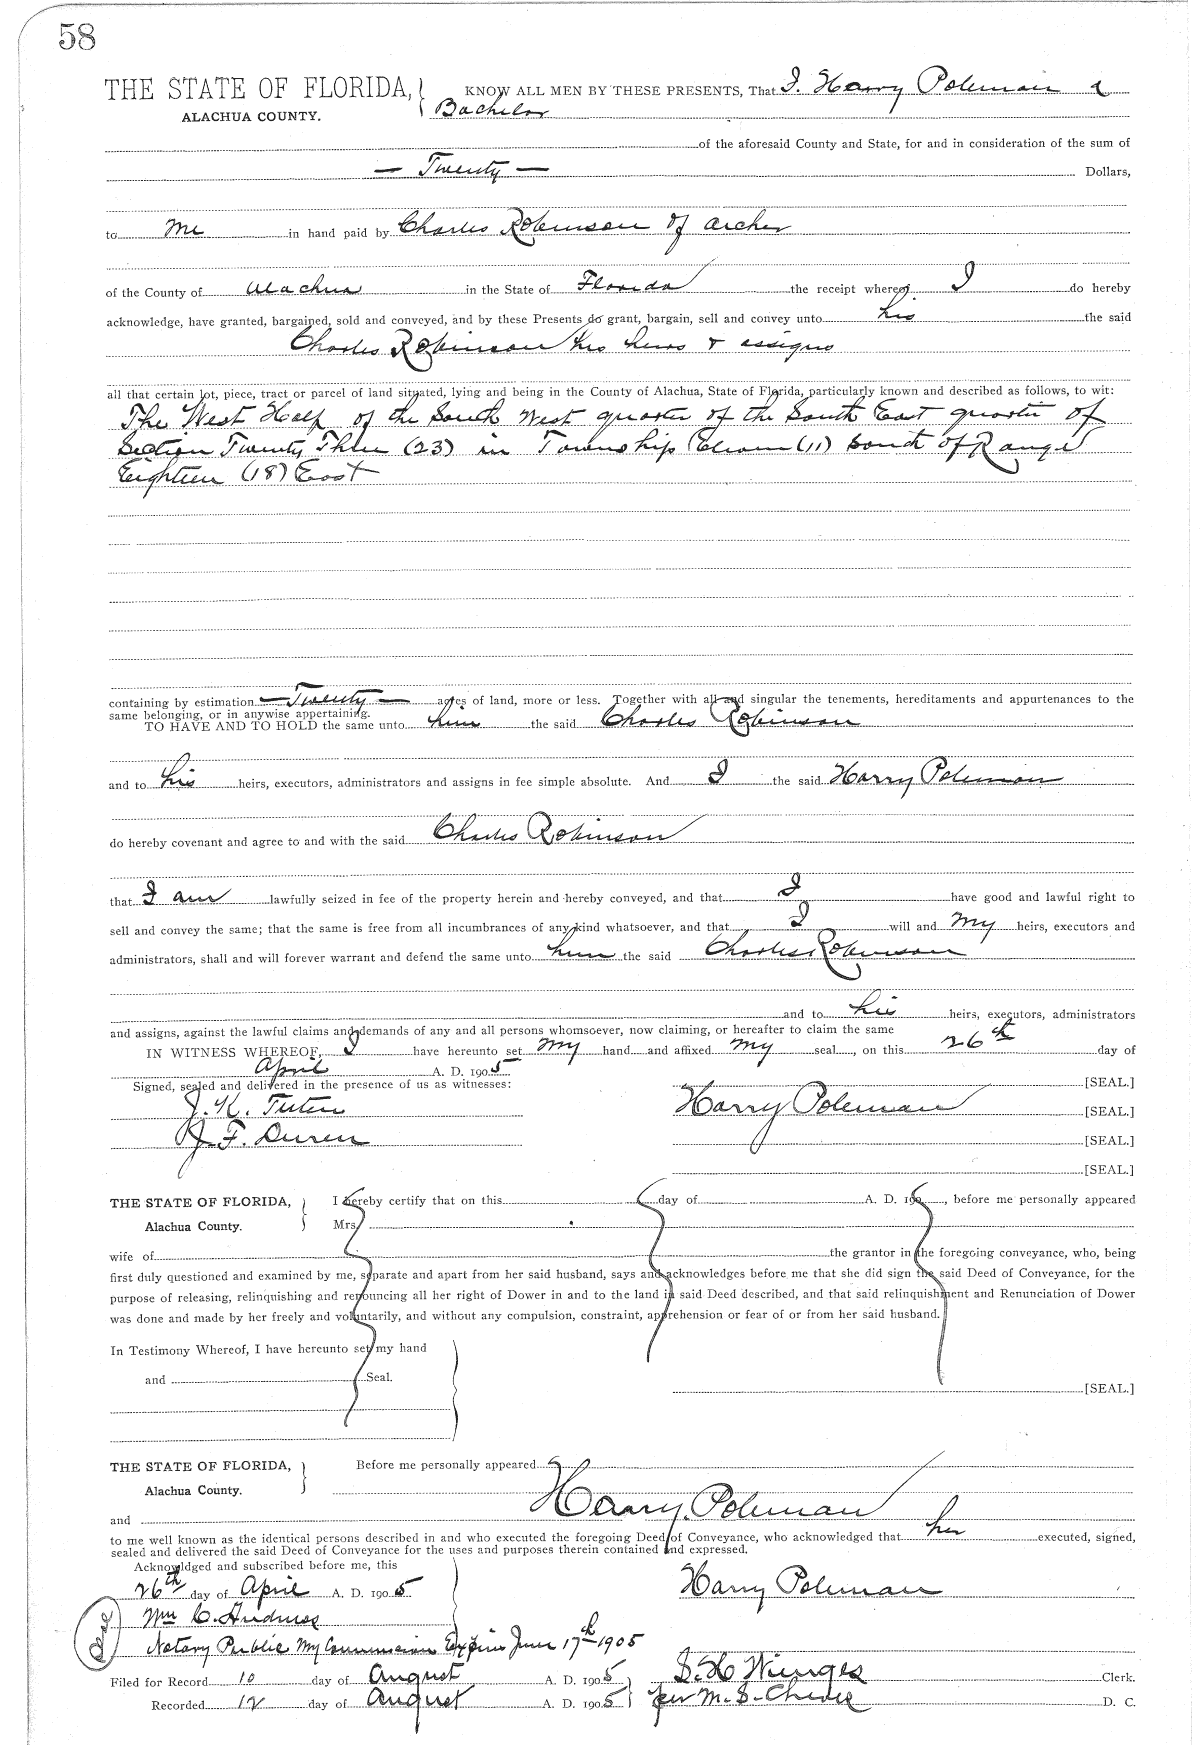 58
THE STATE OF FLORIDA, KNOW ALL MEN BY THESE PRESENTS, That I, Harry Poleman a
ALACHUA COUNTY. Bachelor
of the aforesaid County and State, for and in consideration of the sum of
— Twenty — Dollars,
to me in hand paid by Charles Robinson of Archer
of the County of Alachua in the State of Florida the receipt whereof I do hereby
acknowledge, have granted, bargained, sold and conveyed, and by these Presents do grant, bargain, sell and convey unto his the said
Charles Robinson his heirs & assigns
all that certain lot, piece, tract or parcel of land situated, lying and being in the County of Alachua, State of Florida, particularly known and described as follows, to wit:
The West Half of the South West quarter of the South East quarter of
Section Twenty Three (23) in Township Eleven (11) South of Range
Eighteen (18) East
containing by estimation — Twenty — acres of land, more or less. Together with all and singular the tenements, hereditaments and appurtenances to the
same belonging, or in anywise appertaining.
TO HAVE AND TO HOLD the same unto him the said Charles Robinson
and to his heirs, executors, administrators and assigns in fee simple absolute. And I the said Harry Poleman
do hereby covenant and agree to and with the said Charles Robinson
that I am lawfully seized in fee of the property herein and hereby conveyed, and that I have good and lawful right to
sell and convey the same; that the same is free from all incumbrances of any kind whatsoever, and that I will and my heirs, executors and
administrators, shall and will forever warrant and defend the same unto him the said Charles Robinson
and to his heirs, executors, administrators
and assigns, against the lawful claims and demands of any and all persons whomsoever, now claiming, or hereafter to claim the same
IN WITNESS WHEREOF, I have hereunto set my hand and affixed my seal, on this 26th day of
April A. D. 1905
Signed, sealed and delivered in the presence of us as witnesses: [SEAL.]
J. K. Tuten Harry Poleman [SEAL.]
J. F. Duren [SEAL.]
[SEAL.]
THE STATE OF FLORIDA, I hereby certify that on this day of A. D. 190 , before me personally appeared
Alachua County. Mrs.
wife of the grantor in the foregoing conveyance, who, being
first duly questioned and examined by me, separate and apart from her said husband, says and acknowledges before me that she did sign the said Deed of Conveyance, for the
purpose of releasing, relinquishing and renouncing all her right of Dower in and to the land in said Deed described, and that said relinquishment and Renunciation of Dower
was done and made by her freely and voluntarily, and without any compulsion, constraint, apprehension or fear of or from her said husband.
In Testimony Whereof, I have hereunto set my hand
and Seal.
[SEAL.]
THE STATE OF FLORIDA, Before me personally appeared
Alachua County.
and Harry Poleman
to me well known as the identical persons described in and who executed the foregoing Deed of Conveyance, who acknowledged that he executed, signed,
sealed and delivered the said Deed of Conveyance for the uses and purposes therein contained and expressed.
Acknowldged and subscribed before me, this
26th day of April A. D. 1905 Harry Poleman
Wm C. Andruss
Seal
Notary Public My Commission Expires June 17th 1905
Filed for Record 10 day of August A. D. 1905 S. H. Wienges Clerk.
Recorded 12 day of August A. D. 1905 per M. S. D. C.